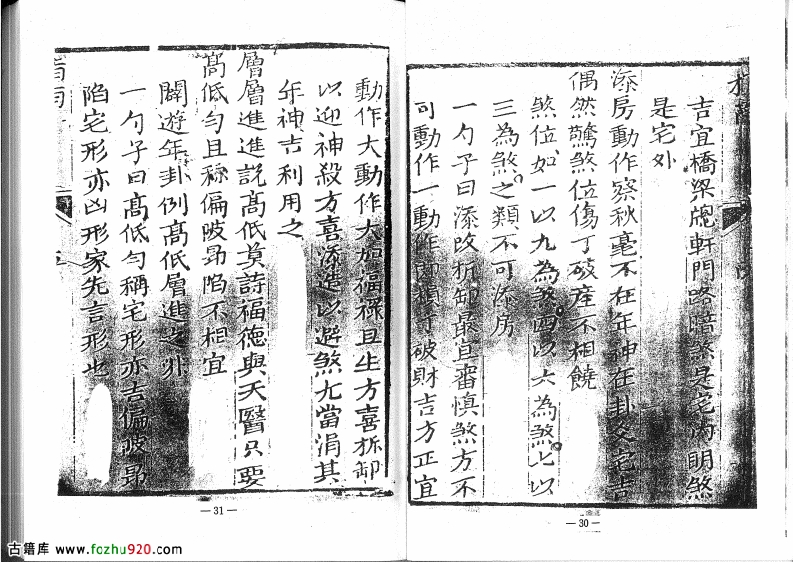 吉宜橋梁牕軒門路暗煞是宅內明煞
是宅外
添房動作察秋毫不在年神在卦爻宅吉
偶然驚煞位傷丁破產不相饒
煞位如一以九為煞四以六為煞七以
三為煞之類不可添房
一勺子曰添改拆卸最宜審慎煞方不
可動作一動作破財吉方正宜
— 30 —
動作大動作大加福祿且生方喜拆卸
以迎神殺方喜添造以避煞尤當涓其
年神吉利用之
層層進進說高低莫詩福德與天醫只要
高低勻且稱偏陂昂陷不相宜
闢遊年卦例高低層進之非
一勺子曰高低勻稱宅形亦吉偏陂昂
陷宅形亦凶形家先言形也
— 31 —
古籍库 www.fozhu920.com